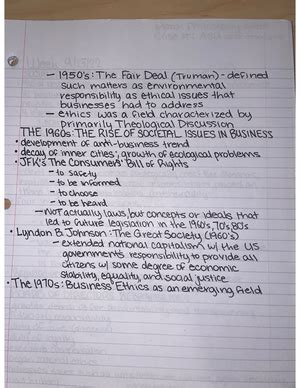 - 1950's: The Fair Deal (Truman) - defined
such matters as environmental
responsibility as ethical issues that
businesses had to address
- ethics was a field characterized by
primarily Theological Discussion
THE 1960s: THE RISE OF SOCIETAL ISSUES IN BUSINESS
• development of anti-business trend
• decay of inner cities; growth of ecological problems
• JFK's The Consumers' Bill of Rights
- to safety
- to be informed
- to choose
- to be heard
- Not actually laws, but concepts or ideals that
led to future legislation in the 1960s, 70s, 80s
• Lyndon B. Johnson: The Great Society (1960's)
- extended national capitalism w/ the US
government's responsibility to provide all
citizens w/ some degree of economic
stability, equality, and social justice
• The 1970s: Business Ethics as an emerging field